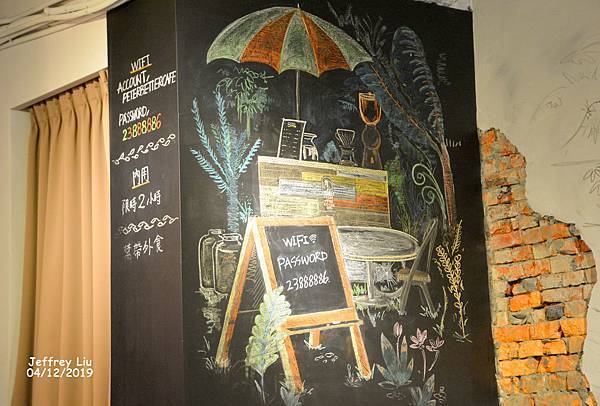 WIFI
ACCOUNT,
PETERBETTERCAFE
PASSWORD,
23888886
內用
限時2小時
禁帶外食
WIFI
PASSWORD
23888886.
Jeffrey Liu
04/12/2019